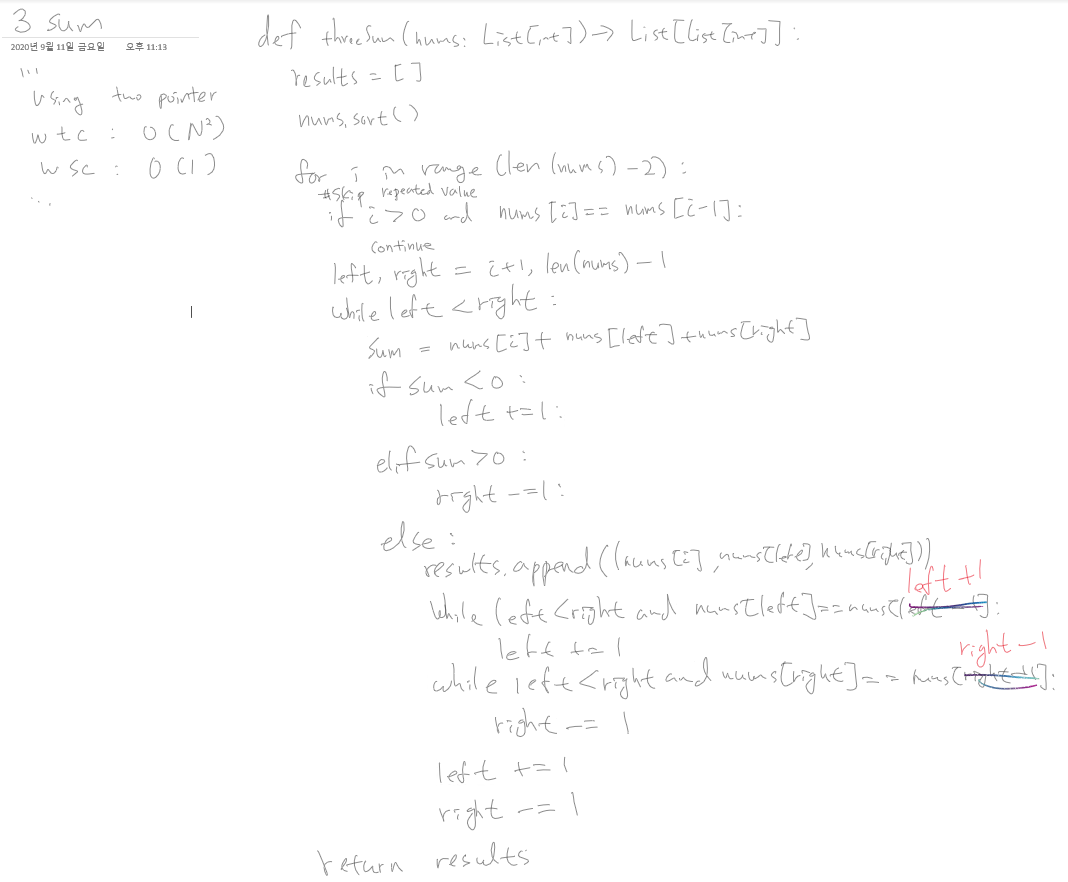 3 sum
2020년 9월 11일 금요일 오후 11:13
'''
Using two pointer
w t c : O(N²)
w s c : O(1)
...
def threeSum(nums: List[int]) -> List[List[int]]:
results = []
nums.sort()
for i in range (len(nums) -2) :
#skip repeated value
if i > 0 and nums[i] == nums[i-1]:
continue
left, right = i+1, len(nums) - 1
while left < right :
sum = nums[i] + nums[left] + nums[right]
if sum < 0 :
left += 1 :
elif sum > 0 :
right -= 1 :
else :
results.append((nums[i], nums[left], nums[right]))
left +1
while left < right and nums[left] == nums[left -1]:
left += 1
right - 1
while left < right and nums[right] == nums[right +1]:
right -= 1
left += 1
right -= 1
return results